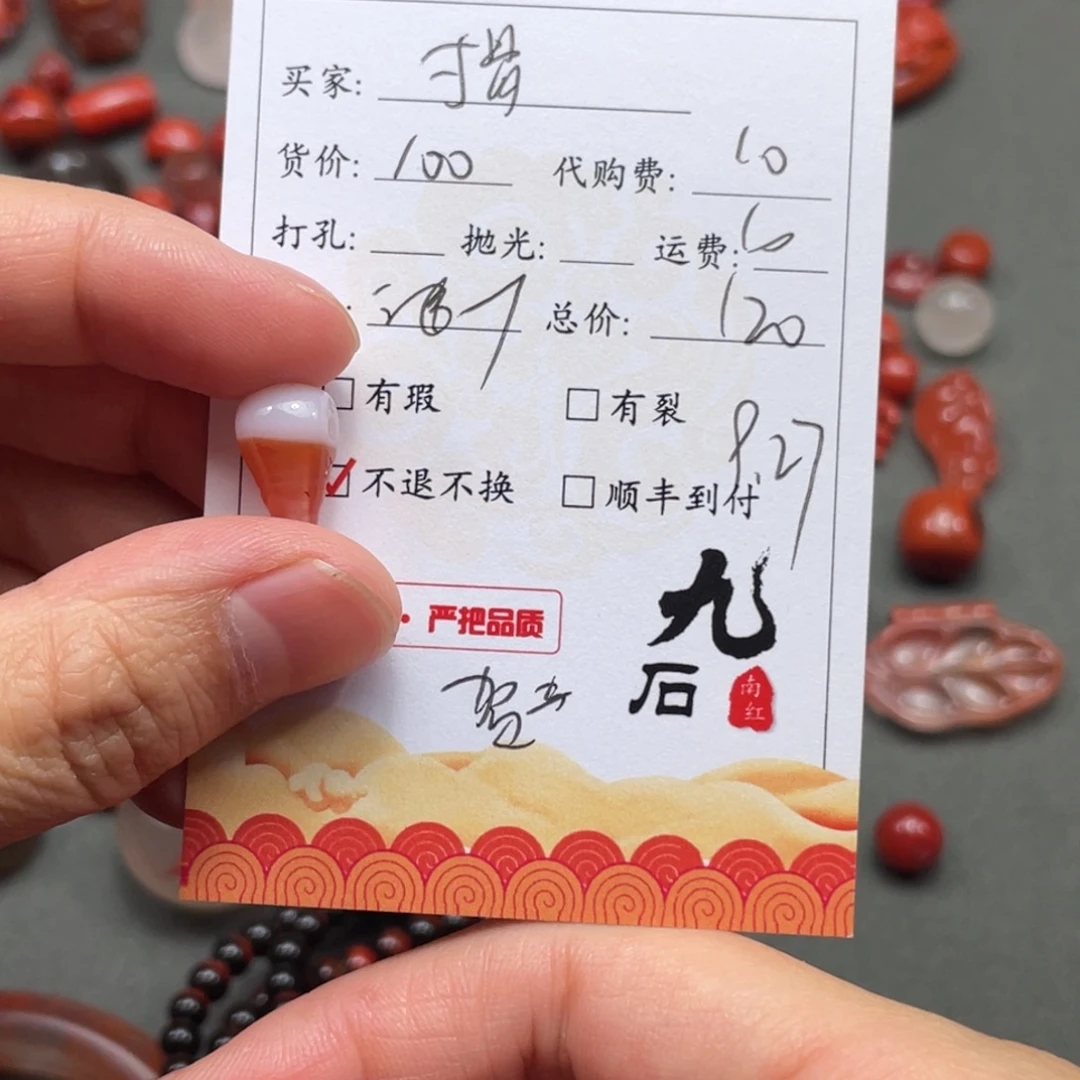 买家:
货价: 100 代购费: 10
打孔: 抛光: 运费: 10
: 总价: 120
□有瑕 □有裂
9.27
☑不退不换 □顺丰到付
· 严把品质
九石
南红